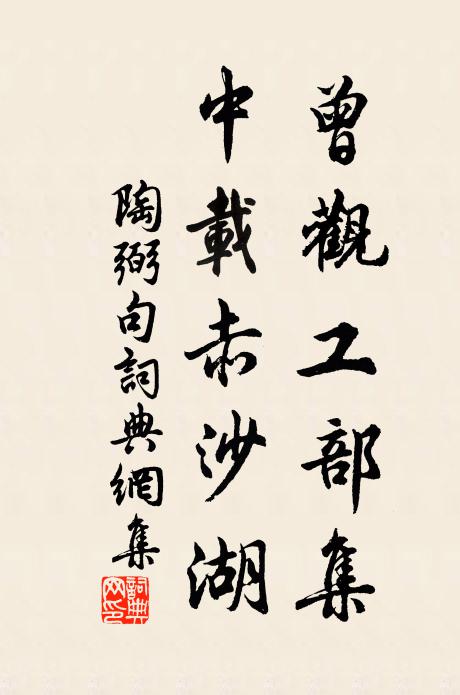 曾觀工部集
中載赤沙湖
陶弼句詞典網集
詞典网印